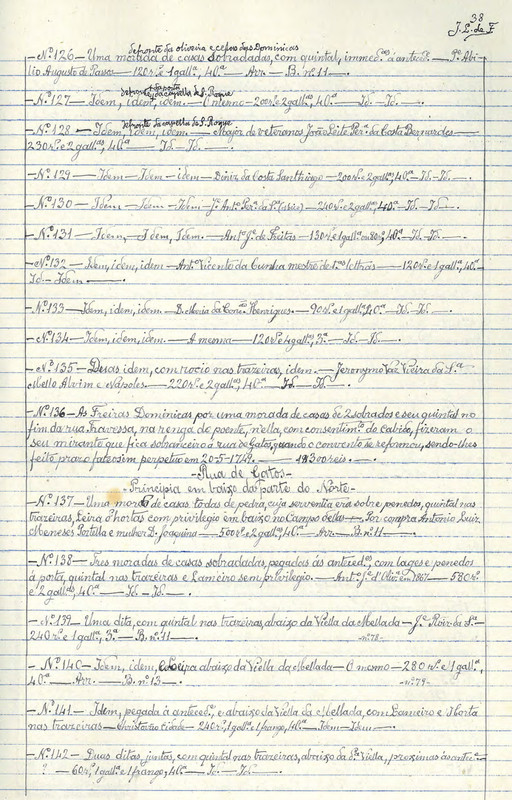 38
defronte da oliveira e cêrca das Dominicas
- Nº 126 - Uma morada de casas sobradadas, com quintal, immed.ª á anteced. - Pe. Abi-
lio Augusto de Passos - 120 rs. e 1 gall.ª, 40.ª Arr. - B. nº 11 -.
defronte da porta da capella de S. Roque
- Nº 127 - Idem, idem, idem. - O mesmo - 200 rs. e 2 gall.as, 40.ª - Id. - Id. -.
defronte da capella de S. Roque
- Nº 128 - Idem, idem, idem. - Major de veteranos João Leite Per.ª da Costa Bernardes -
230 rs. e 2 gall.as, 40.ª - Id. - Id. -.
- Nº 129 - Idem - Idem - idem - Diniz da Costa Santhiago - 200 rs. e 2 gall.as, 40.ª - Id. - Id. -.
- Nº 130 - Idem - Idem - Idem - Je. Ant.º Per.ª da S.ª - 240 rs. e 2 gall.as, 40.ª - Id. - Id. -.
- Nº 131 - Idem, Idem, Idem. - Ant.º Je. de Freitas - 130 rs. e 1 gall.ª ou 80 rs., 40.ª - Id. - Id. -.
- Nº 132 - Idem, idem, idem - Ant.º Vicente da Cunha mestre de 1.as lettras - 120 rs. e 1 gall.ª, 40.ª -
Id. - Idem -.
- Nº 133 - Idem, idem, idem. D. Maria da Conc.ªm Henriques. - 90 rs. e 1 gall.ª, 40.ª - Id. - Id. -.
- Nº 134 - Idem, idem, idem. - A mesma - 120 rs. e 4 gall.as, 3.ª - Id. - Id. -.
- Nº 135 - Duas idem, com rocio nas trazeiras, idem. - Jeronymo Vaz Vieira da S.ª
Mello Alvim e Nápoles. - 220 rs. e 2 gall.as, 40.ª - Id. - Id. -.
- Nº 136 - As Freiras Dominicas por uma morada de casas de 2 sobrados e seu quintal no
fim da rua Travessa, na renque do poente, n'ella, com consentim.to do Cabido, fizeram o
seu mirante que fica sobranceiro á rua de Gatos, quando o convento se reformou, sendo-lhes
feito prazo fateosim perpetuo em 20-5-1742. - 300 reis -.
- Rua de Gatos -
- Principia em baixo da parte do Norte -
- Nº 137 - Uma morada de casas todas de pedra, cuja serventia era sobre penedos, quintal nas
trazeiras, Leira d'hortas com privilegio em baixo no Campo della - Por compra Antonio Luiz
Meneses Portella e mulher D. Joaquina - 500 rs. e 2 gall.as, 40.ª - Arr. - B. nº 11 -.
- Nº 138 - Tres moradas de casas sobradadas, pegadas ás anteced.es, com lages e penedos
á porta, quintal nas trazeiras e Lameiro sem privilegio. - Ant.º Je. d'Oliv.ª em 1867 - 580 rs.
e 2 gall.as, 40.ª - Id. - Id. -.
- Nº 139 - Uma dita, com quintal nas trazeiras, abaixo da Viella da Mellada - Je. Roiz da S.ª -
240 rs. e 1 gall.ª, 3.ª - B. nº 11 -.
- nº 78 -
- Nº 140 - Idem, idem, e Leira abaixo da Viella da Mellada - O mesmo - 280 rs. e 1 gall.ª,
40.ª - Arr. - B. nº 13 -.
- nº 79 -
- Nº 141 - Idem, pegada á anteced.e, e abaixo da Viella da Mellada, com Lameiro e Horta
nas trazeiras - 240 rs., 1 gall.ª e 1 frango, 40.ª - Idem - Idem -.
- Nº 142 - Duas ditas juntas, com quintal nas trazeiras, abaixo da d.ª Viella, proximas ás antec.es -
? - 60 rs., 1 gall.ª e 1 frango, 40.ª - Id. - Id. -.